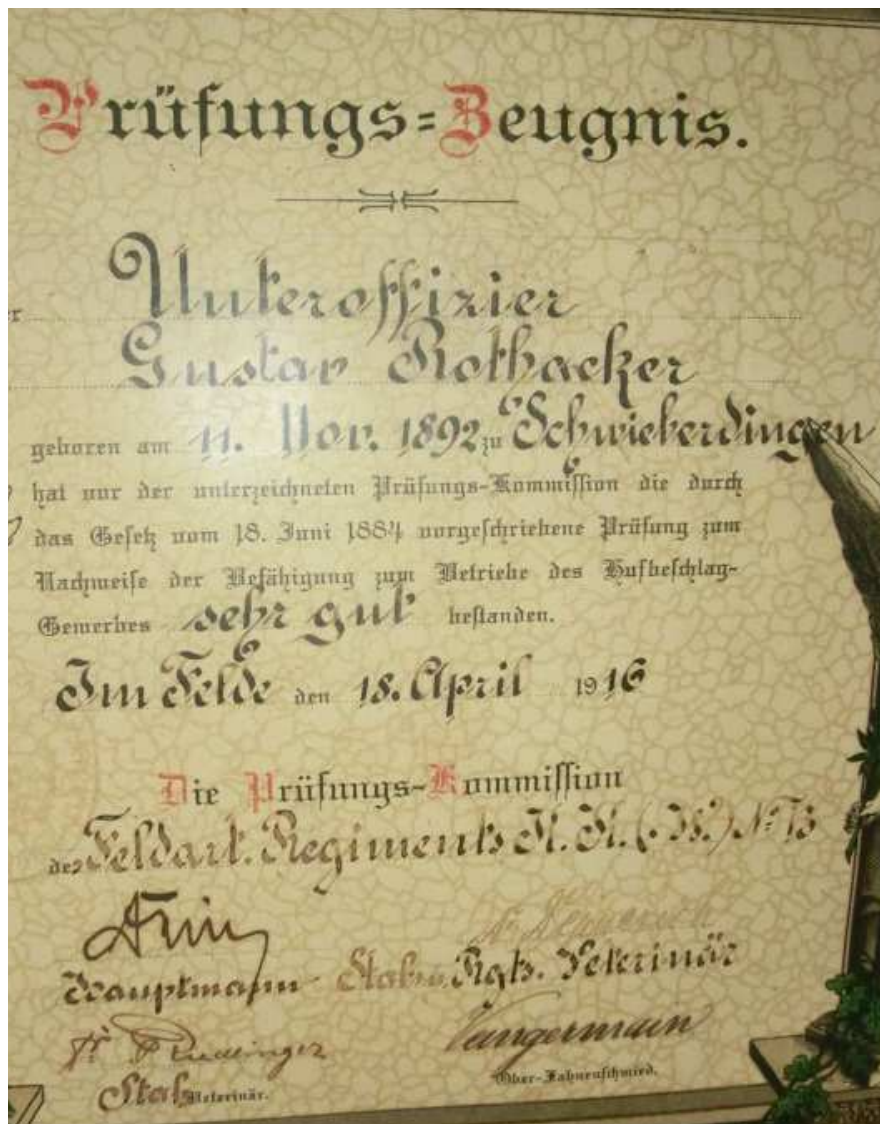 Prüfungs=Zeugnis.
er Unteroffizier
Gustav Rothacker
geboren am 11. Nov. 1892 zu Schwieberdingen
hat vor der unterzeichneten Prüfungs-Kommission die durch
das Gesetz vom 18. Juni 1884 vorgeschriebene Prüfung zum
Nachweise der Befähigung zum Betriebe des Hufbeschlag-
Gewerbes sehr gut bestanden.
Im Felde den 18. April 1916
Die Prüfungs-Kommission
des Feldart. Regiments
Hauptmann Stabs u. Rgts. Veterinär
Dr.
Stabsveterinär. Ober-Fahnenschmied.